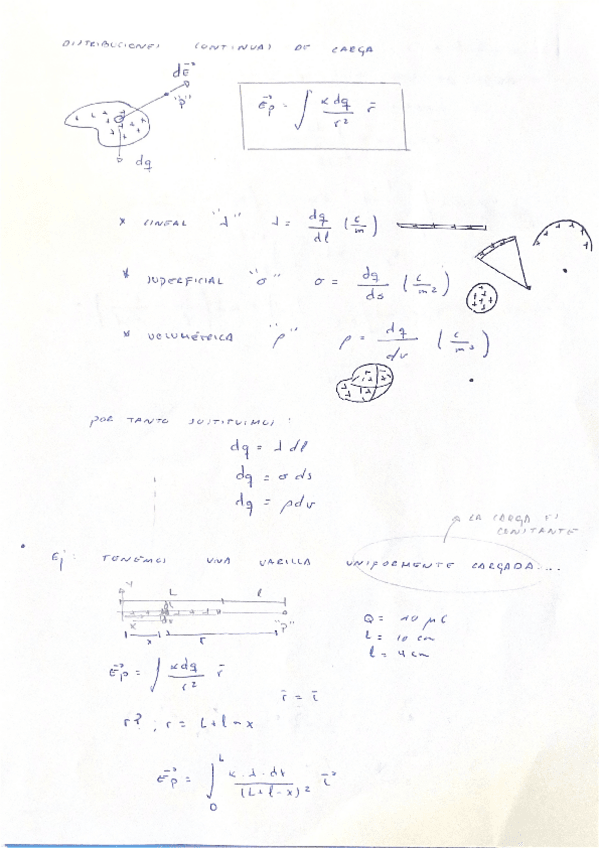 DISTRIBUCIONES CONTINUAS DE CARGA
dE⃗
"P"
dq
E⃗p = ∫ K dq / r² r̄
* LINEAL "λ" λ = dq/dl (C/m)
* SUPERFICIAL "σ" σ = dq/ds (C/m²)
* VOLUMÉTRICA "ρ" ρ = dq/dv (C/m³)
POR TANTO SUSTITUIMOS:
dq = λ dl
dq = σ ds
dq = ρ dv
LA CARGA ES
CONSTANTE
Ej: TENEMOS UNA VARILLA UNIFORMEMENTE CARGADA...
y L l
x r "P"
Q = 10 μC
L = 10 cm
l = 4 cm
E⃗p = ∫ K dq / r² r̄
r̄ = ī
r? ; r = L + l - x
E⃗p = ∫₀ᴸ K · λ · dx / (L + l - x)² i⃗